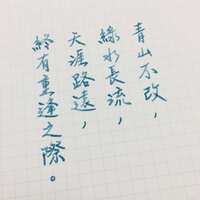 青山不改，
綠水長流，
天涯路遠，
終有重逢之際。